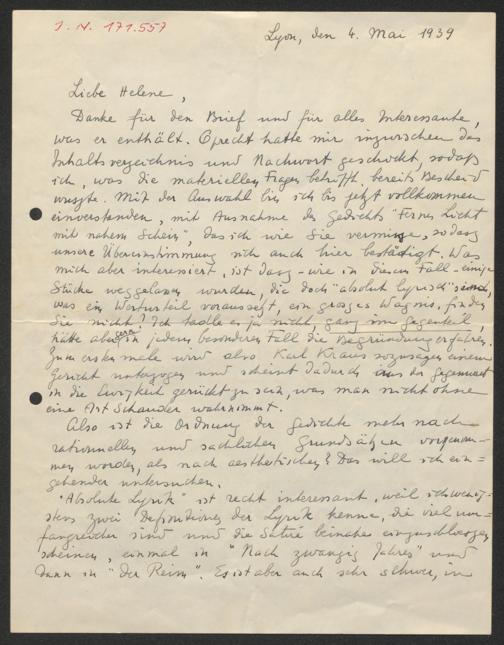 I. N. 171.557
Lyon, den 4. Mai 1939
Liebe Helene,
Danke für den Brief und für alles Interessante,
was er enthält. Oprecht hatte mir inzwischen das
Inhaltsverzeichnis und Nachwort geschickt, sodaß
ich, was die materiellen Fragen betrifft, bereits Bescheid
wusste. Mit der Auswahl bin ich bis jetzt vollkommen
einverstanden, mit Ausnahme des Gedichts "Fernes Licht
mit nahem Schein", das ich wie Sie vermisse, sodass
unsere Übereinstimmung sich auch hier bestätigt. Was
mich aber interessiert, ist dass - wie in diesem Fall - einige
Stücke weggelassen wurden, die doch "absolut lyrisch" sind,
was ein Werturteil voraussetzt, ein grosses Wagnis, finden
Sie nicht? Ich tadle es ja nicht, ganz im Gegenteil,
hätte aber gern in jedem besonderen Fall die Begründung erfahren.
Zum ersten male wird also Karl Kraus sozusagen einem
Gericht unterzogen und scheint dadurch aus der Gegenwart
in die Ewigkeit gerückt zu sein, was man nicht ohne
eine Art Schauder wahrnimmt.
Also ist die Ordnung der Gedichte mehr nach
rationellen und sachlichen Grundsätzen vorgenom-
men worden, als nach aesthetischen? Das will ich ein=
gehender untersuchen.
"Absolute Lyrik" ist recht interessant, weil ich wenig-
stens zwei Definitionen der Lyrik kenne, die viel um=
fangreicher sind und die Satire beinahe einzuschliessen
scheinen, einmal in "Nach zwanzig Jahren" und
dann in "Der Reim". Es ist aber auch sehr schwer, im